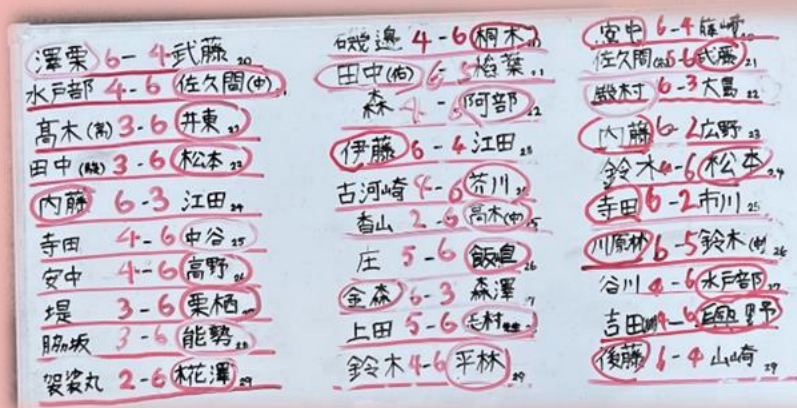 澤栗 6-4 武藤 20
水戸部 4-6 佐久間(中)
高木(常) 3-6 井東 22
田中(駿) 3-6 松本 23
内藤 6-3 江田 24
寺田 4-6 中谷 25
安中 4-6 高野 26
堤 3-6 栗栖
脇坂 3-6 能勢 28
袈裟丸 2-6 椛澤 29
磯邉 4-6 桐木
田中(佑) 6-5 稲葉
森 4- 阿部 22
伊藤 6-4 江田 23
古河崎 4-6 芥川
香山 2-6 高木(中)
庄 5-6 飯眞 26
金森 6-3 森澤
上田 5-6 志村
鈴木 4-6 平林 29
宮中 6-4 藤崎
佐久間 5-6 武藤 21
殿村 6-3 大島 22
内藤 6-2 広野 23
鈴木 4-6 松本 24
寺田 6-2 市川 25
川原林 6-5 鈴木 26
谷川 4-6 水戸部 27
吉田 4-6
後藤 6-4 山崎 29